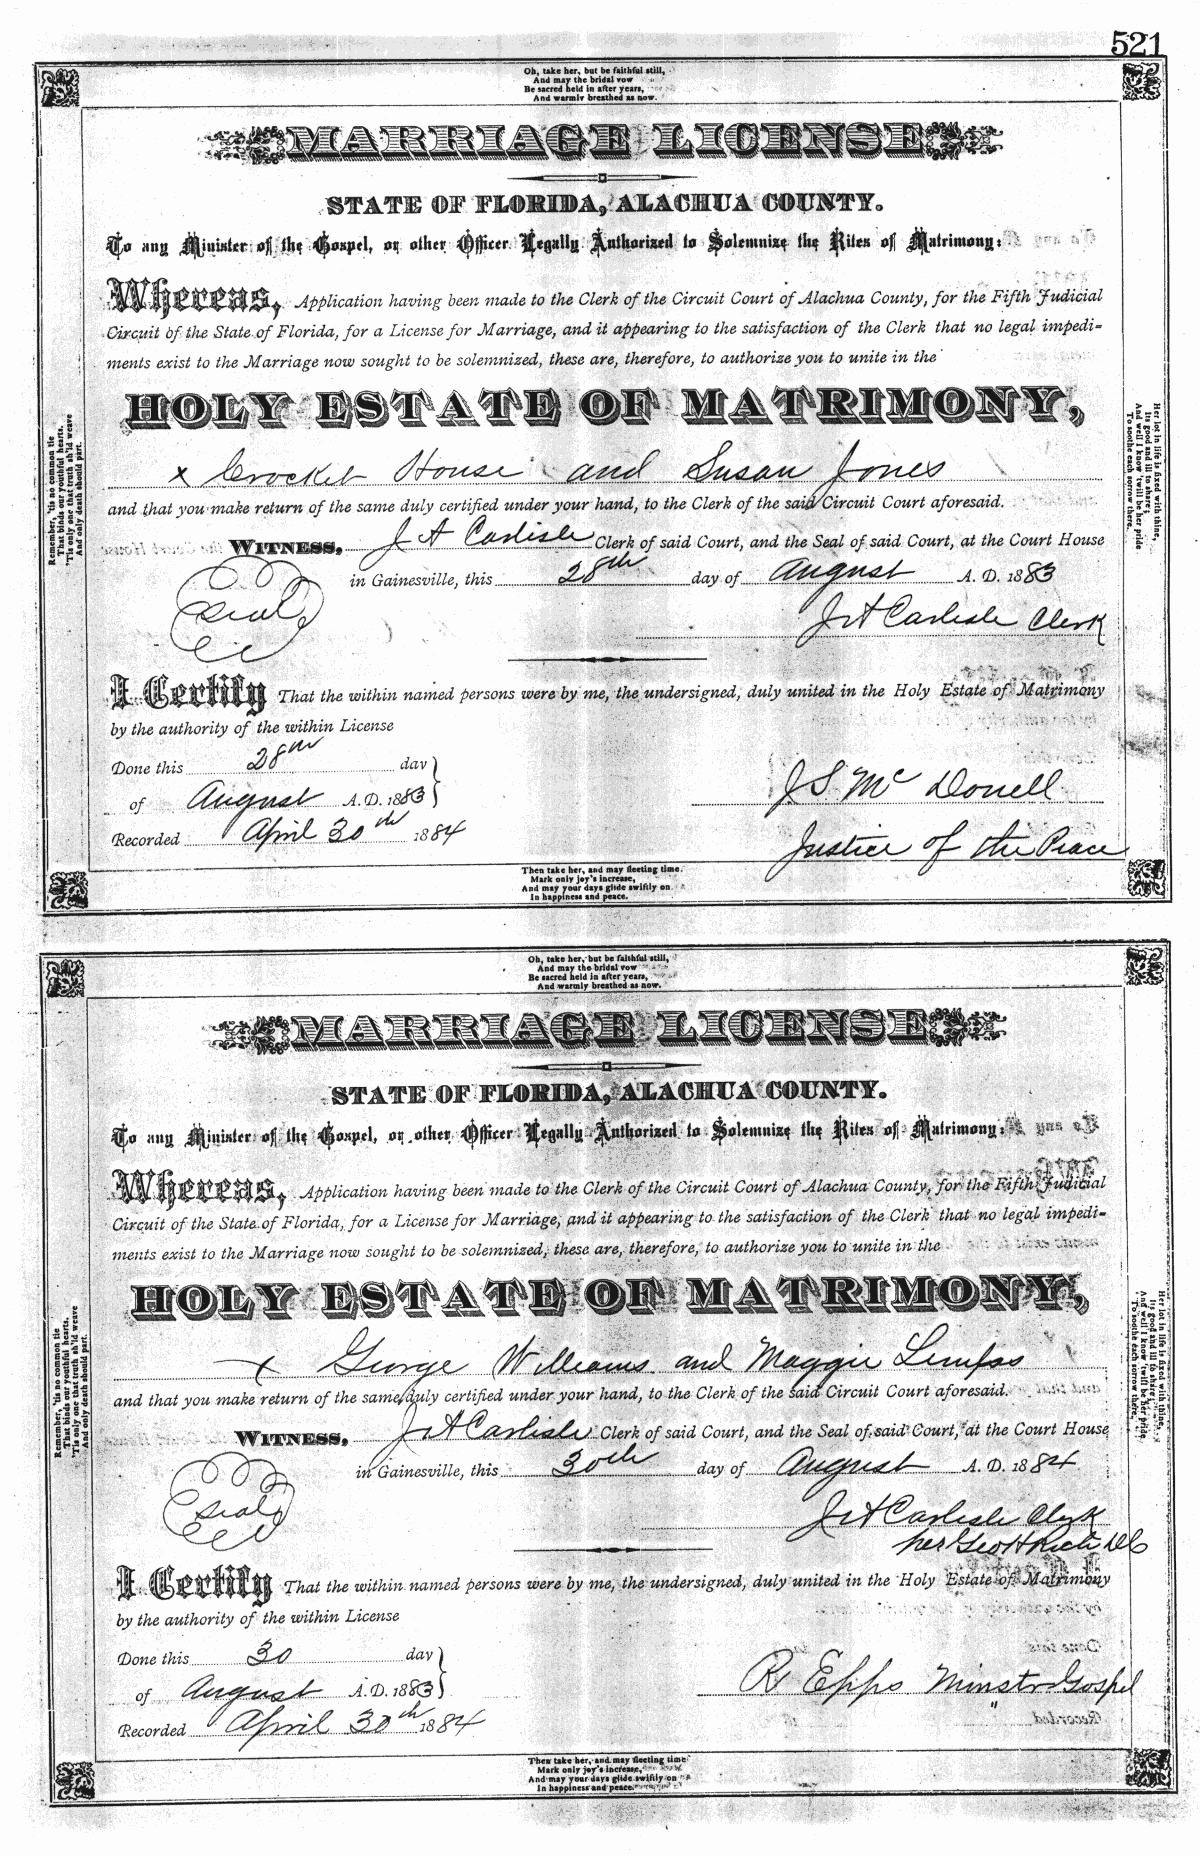 521
Oh, take her, but be faithful still,
And may the bridal vow
Be sacred held in after years,
And warmly breathed as now.
MARRIAGE LICENSE
STATE OF FLORIDA, ALACHUA COUNTY.
To any Minister of the Gospel, or other Officer Legally Authorized to Solemnize the Rites of Matrimony:
Whereas, Application having been made to the Clerk of the Circuit Court of Alachua County, for the Fifth Judicial
Circuit of the State of Florida, for a License for Marriage, and it appearing to the satisfaction of the Clerk that no legal impedi-
ments exist to the Marriage now sought to be solemnized, these are, therefore, to authorize you to unite in the
HOLY ESTATE OF MATRIMONY,
x Crocket House and Susan Jones
and that you make return of the same duly certified under your hand, to the Clerk of the said Circuit Court aforesaid.
WITNESS, J A Carlisle Clerk of said Court, and the Seal of said Court, at the Court House
in Gainesville, this 28th day of August A. D. 1883
Seal
J A Carlisle Clerk
I Certify That the within named persons were by me, the undersigned, duly united in the Holy Estate of Matrimony
by the authority of the within License
Done this 28th day
of August A. D. 1883
J S Mc Donell
Recorded April 30th 1884
Justice of the Peace
Remember, 'tis no common tie
That binds our youthful hearts,
'Tis only one that truth sh'ld weave
And only death should part.
Her lot in life is fixed with thine,
Its good and ill to share;
And well I know 'twill be her pride
To soothe each sorrow there.
Then take her, and may fleeting time
Mark only joy's increase,
And may your days glide swiftly on
In happiness and peace.
Oh, take her, but be faithful still,
And may the bridal vow
Be sacred held in after years,
And warmly breathed as now.
MARRIAGE LICENSE
STATE OF FLORIDA, ALACHUA COUNTY.
To any Minister of the Gospel, or other Officer Legally Authorized to Solemnize the Rites of Matrimony:
Whereas, Application having been made to the Clerk of the Circuit Court of Alachua County, for the Fifth Judicial
Circuit of the State of Florida, for a License for Marriage, and it appearing to the satisfaction of the Clerk that no legal impedi-
ments exist to the Marriage now sought to be solemnized, these are, therefore, to authorize you to unite in the
HOLY ESTATE OF MATRIMONY,
x George Williams and Maggie
and that you make return of the same, duly certified under your hand, to the Clerk of the said Circuit Court aforesaid.
WITNESS, J A Carlisle Clerk of said Court, and the Seal of said Court, at the Court House
in Gainesville, this 30th day of August A. D. 1884
Seal
J A Carlisle Clerk
per Geo H DC
I Certify That the within named persons were by me, the undersigned, duly united in the Holy Estate of Matrimony
by the authority of the within License
Done this 30 day
of August A. D. 1883
R Epps Minstr Gospel
Recorded April 30th 1884
Remember, 'tis no common tie
That binds our youthful hearts,
'Tis only one that truth sh'ld weave
And only death should part.
Her lot in life is fixed with thine,
Its good and ill to share;
And well I know 'twill be her pride
To soothe each sorrow there.
Then take her, and may fleeting time
Mark only joy's increase,
And may your days glide swiftly on
In happiness and peace.